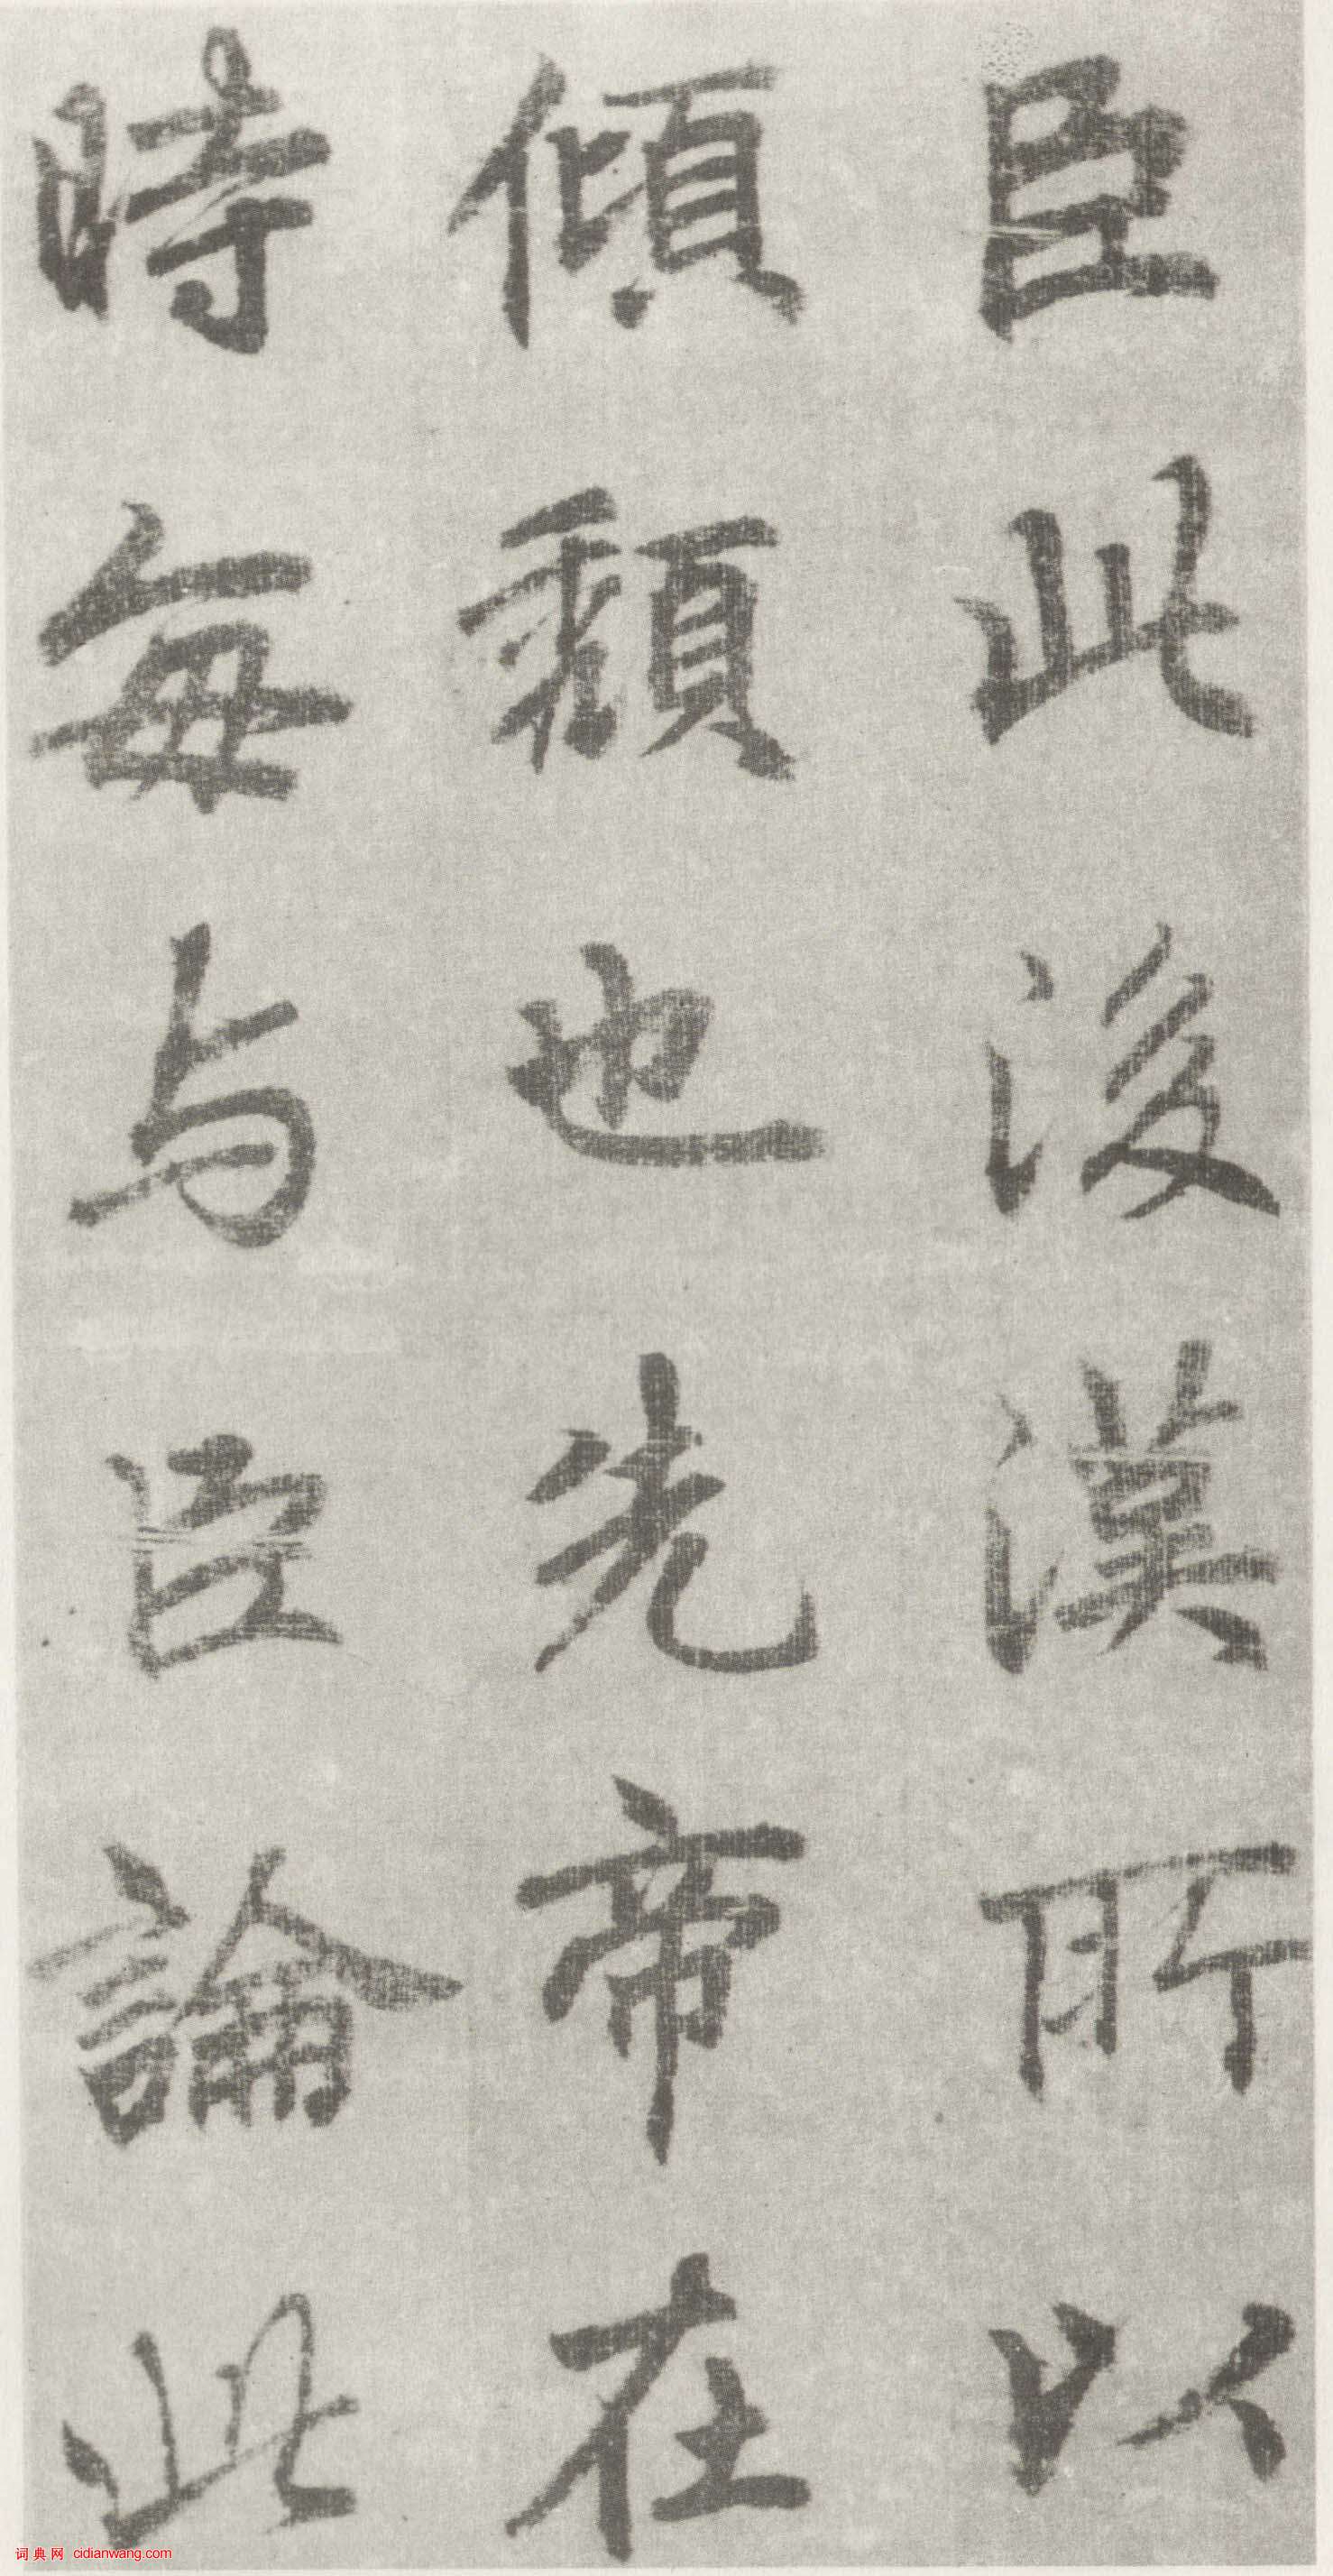 臣此後漢所以
傾頹也先帝在
時每与臣論此
词典网 cidianwang.com